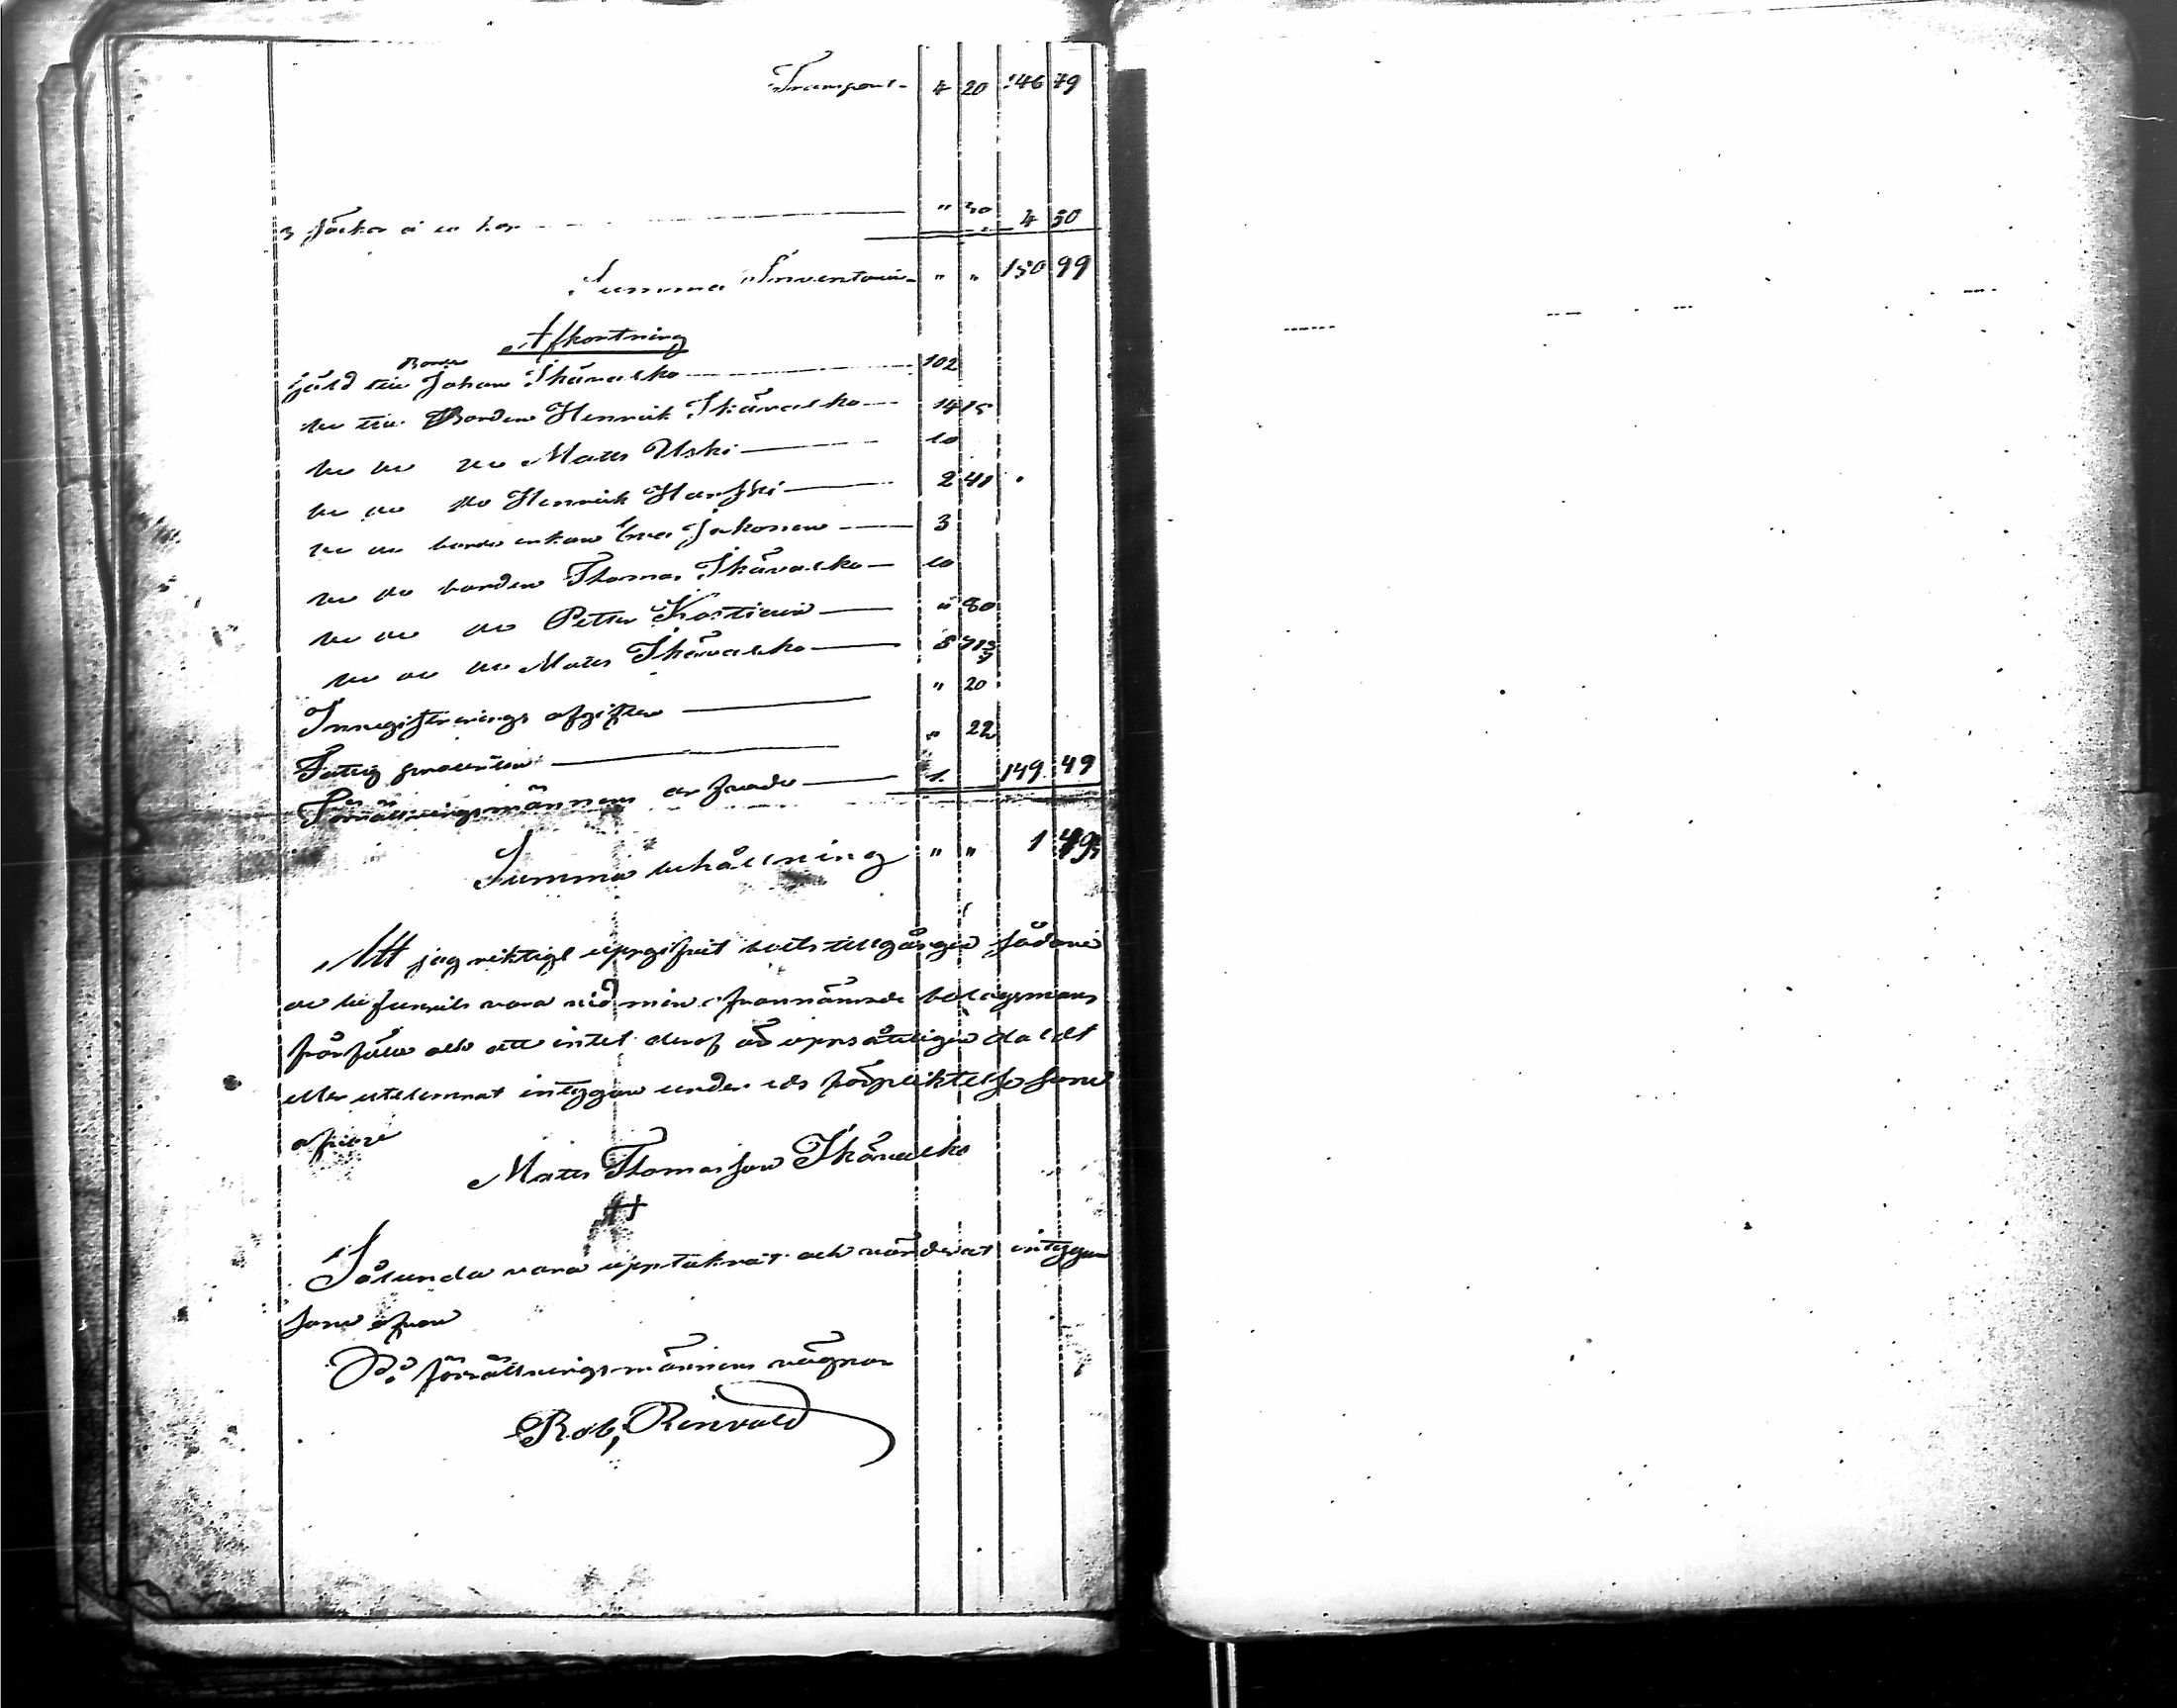 Transport 4 20 146 49
3 säckar à 10 kop " 30 4 50
Summa Inventarii " " 150 99
Afkortning
Bond
gäld till Johan Ikävalko 102
do till Bonden Henrik Ikävalko 14 15
do do do Matts Uski 10
do do do Henrik Hanski 2 40
do do bonde enkan Eva Jakonen 3
do do bonden Thomas Ikävalko 10
do do do Petter Kostiain " 80
do do do Matts Ikävalko 5
Inregistrerings afgiften " 20
Fattig procenten " 22
Förrättningsmännens arfvode 1 149 49
Summa behållning " " 1
Att jag riktigt uppgifvit boets tillgångar sådane
de befunnits vara vid min ofvannämnde bolagsmans
frånfälle och att intet deraf är uppsåtligen doldt
eller utelemnat intyggar under eds förpliktelse som
ofvan
Matts Thomasson Ikävalko
Sålunda vara upptäknat och värderat intyggar
som ofvan
På förrättningsmännens vägnar
Rob, Renvald